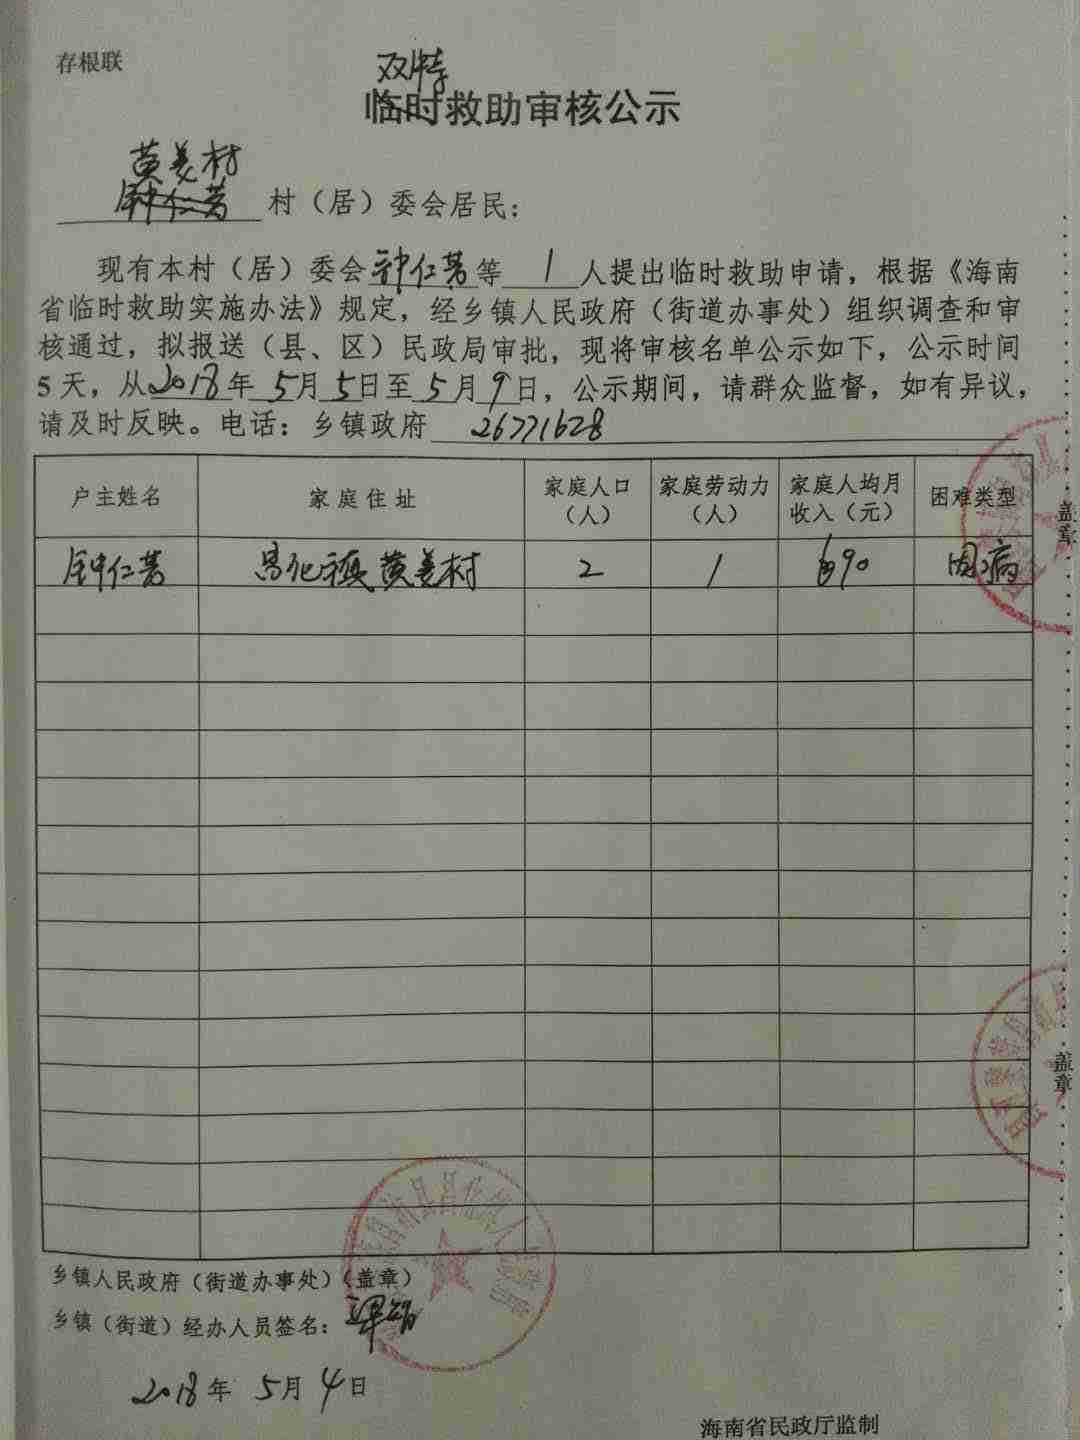 存根联
双特
临时救助审核公示
黄姜村
钟仁芳 村（居）委会居民：
现有本村（居）委会钟仁芳等 1 人提出临时救助申请，根据《海南
省临时救助实施办法》规定，经乡镇人民政府（街道办事处）组织调查和审
核通过，拟报送（县、区）民政局审批，现将审核名单公示如下，公示时间
5天，从2018年5月5日至5月9日，公示期间，请群众监督，如有异议，
请及时反映。电话：乡镇政府 26771628
户主姓名 家庭住址 家庭人口（人） 家庭劳动力（人） 家庭人均月收入（元） 困难类型
钟仁芳 昌化镇黄姜村 2 1 690 因病
盖章
盖章
乡镇人民政府（街道办事处）（盖章）
乡镇（街道）经办人员签名：
2018年5月4日
海南省民政厅监制